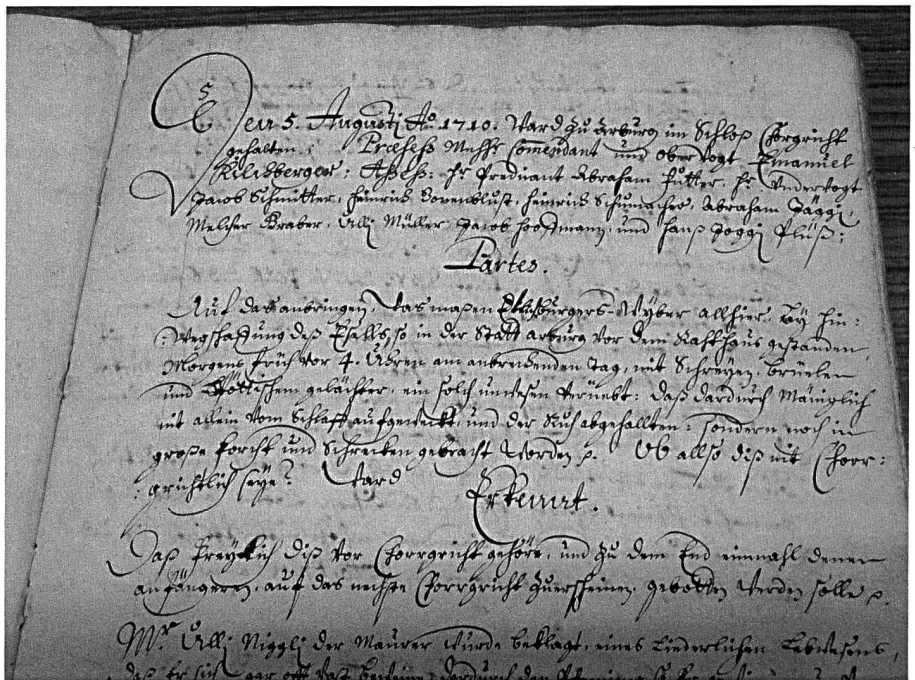 5
Den 5. Augusti Ao. 1710. Ward zu Arburg im Schloß Chorgricht
gehalten: Præses Mhhr Commendant und Obervogt Emanuel
Kilchberger: Assess: Hr Predicant Abraham Sutter, Hr Undervogt
Jacob Schmitter, Heinrich Bonenblust, Heinrich Schumacher, Abraham Jäggi,
Melcher Graber, Ulli Müller, Jacob Hooffmann, und Hanß Joggi Plüß:
Partes.
Auf das anbringen, was maßen Burgers-Wyber allhier. bÿ hin:
:wegschaffung deß Esells, so in der Statt arburg vor dem Rahthaus gestanden,
Morgens früeh vor 4. Uhren am anbrechenden tag, mit Schreyen, brüelen
und gelächter, ein solch unwesen verüebt: daß dardurch Mäniglich
nit allein vom Schlaff aufgeweckt, und der Ruh abgehallten: sondern noch in
große forcht und Schrecken gebracht worden p. Ob allso diß nit Chor:
:grichtlich seye? Ward
Erkennt.
Daß freylich diß vor Chorgricht gehöre, und zu dem End einmahl denen
anfängeren, auf das nechste Chorgricht zuerscheinen, gebotten werden solle p.
Mr. Ulli Niggli der Maurer wurde beklagt, eines Liederlichen Lebwesens,
daß Er sich gar offt